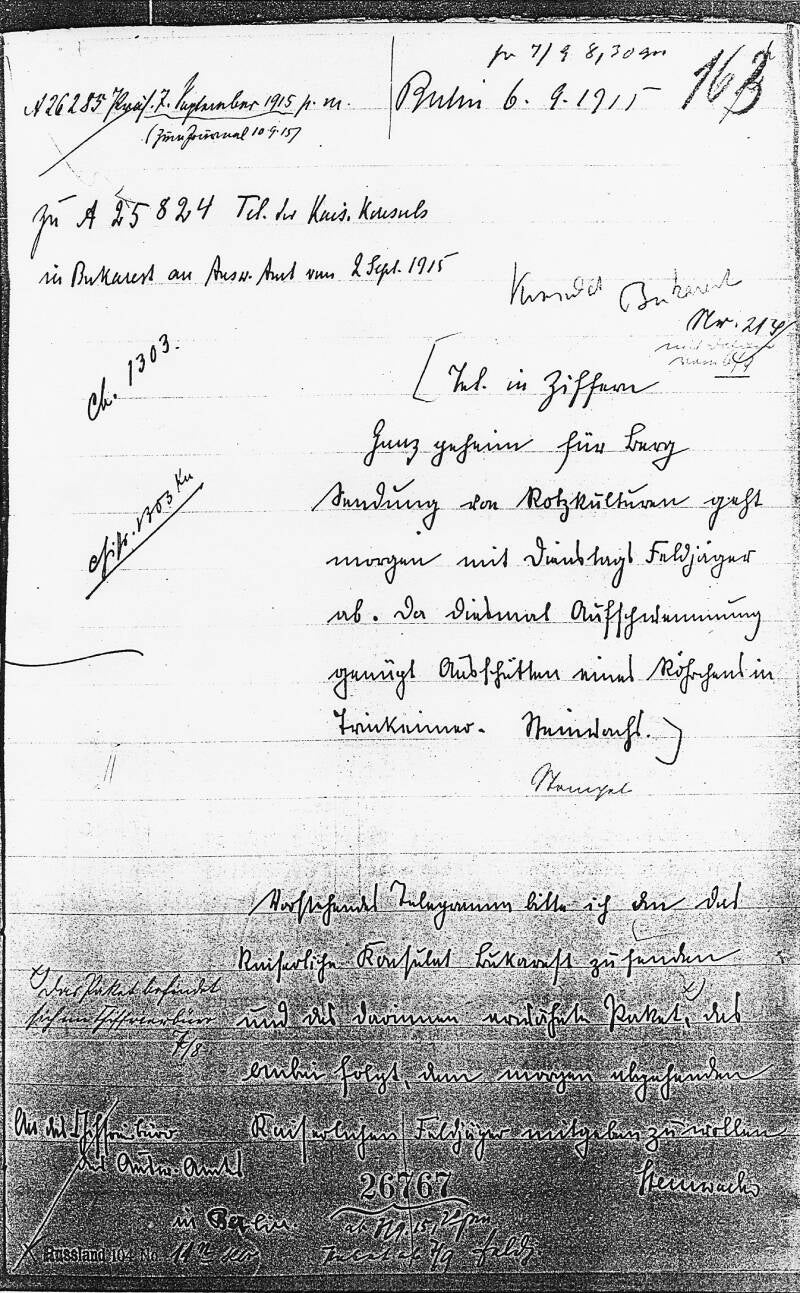 pr 7/9 8,30 Vm
163
A 26285 Präs. 7. September 1915 p. m.
(zum Journal 10.9.15)
Berlin 6. 9. 1915
zu A 25824 Tel. des Kais. Konsuls
in Bukarest an Ausw. Amt vom 2 Sept. 1915
Bukarest
Nr. 214
[Tel. in Ziffern
Ch. 1303.
Ganz geheim für Berg
Sendung von Rotzkulturen geht
chifr. 1303
morgen mit Dienstags Feldjäger
ab. Da diesmal Aufschwemmung
genügt Ausschütten eines Röhrchens in
Trinkeimer. Steinwachs.]
Stempel
Vorstehendes Telegramm bitte ich an das
Kaiserliche Konsulat Bukarest zu senden
x) Das Paket befindet
sich im Chiffrierbüro
7/9
und das darinnen erwähnte Paket x), das
anbei folgt, dem morgen abgehenden
An das Chiffrierbüro
Kaiserlichen Feldjäger mitgeben zu wollen
des Ausw. Amts
26767
Steinwachs
in Berlin
Russland 104 No. 11